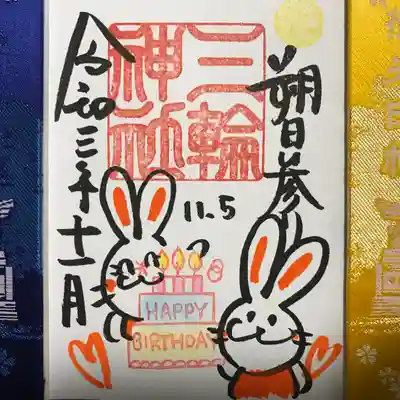 朔日参り
三輪
神社
令和三年十一月
11.5
HAPPY
BIRTHDAY